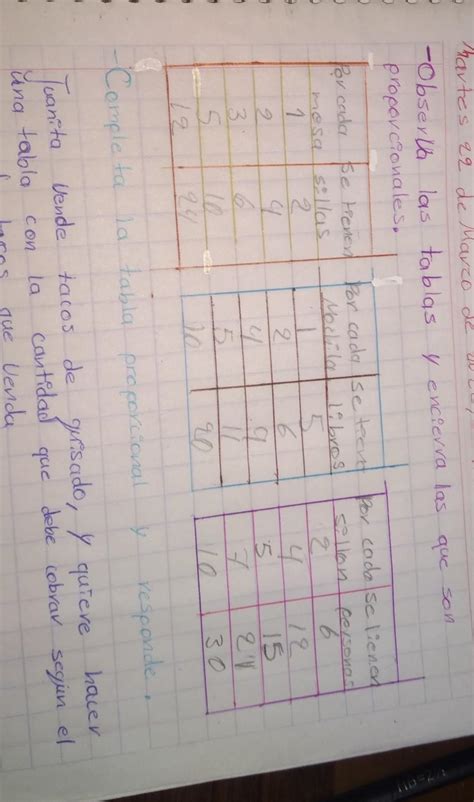 Martes 22 de Marzo de
-Observa las tablas y encierra las que son
proporcionales.
Por cada mesa | se tienen sillas
1 | 2
2 | 4
3 | 6
5 | 10
12 | 24
Por cada Mochila | se tienen libros
1 | 5
2 | 6
4 | 9
5 | 11
10 | 20
Por cada sillon | se tienen personas
2 | 6
4 | 12
5 | 15
7 | 21
10 | 30
-Completa la tabla proporcional y responde.
Juanita vende tacos de guisado, y quiere hacer
una tabla con la cantidad que debe cobrar según el
tacos que venda